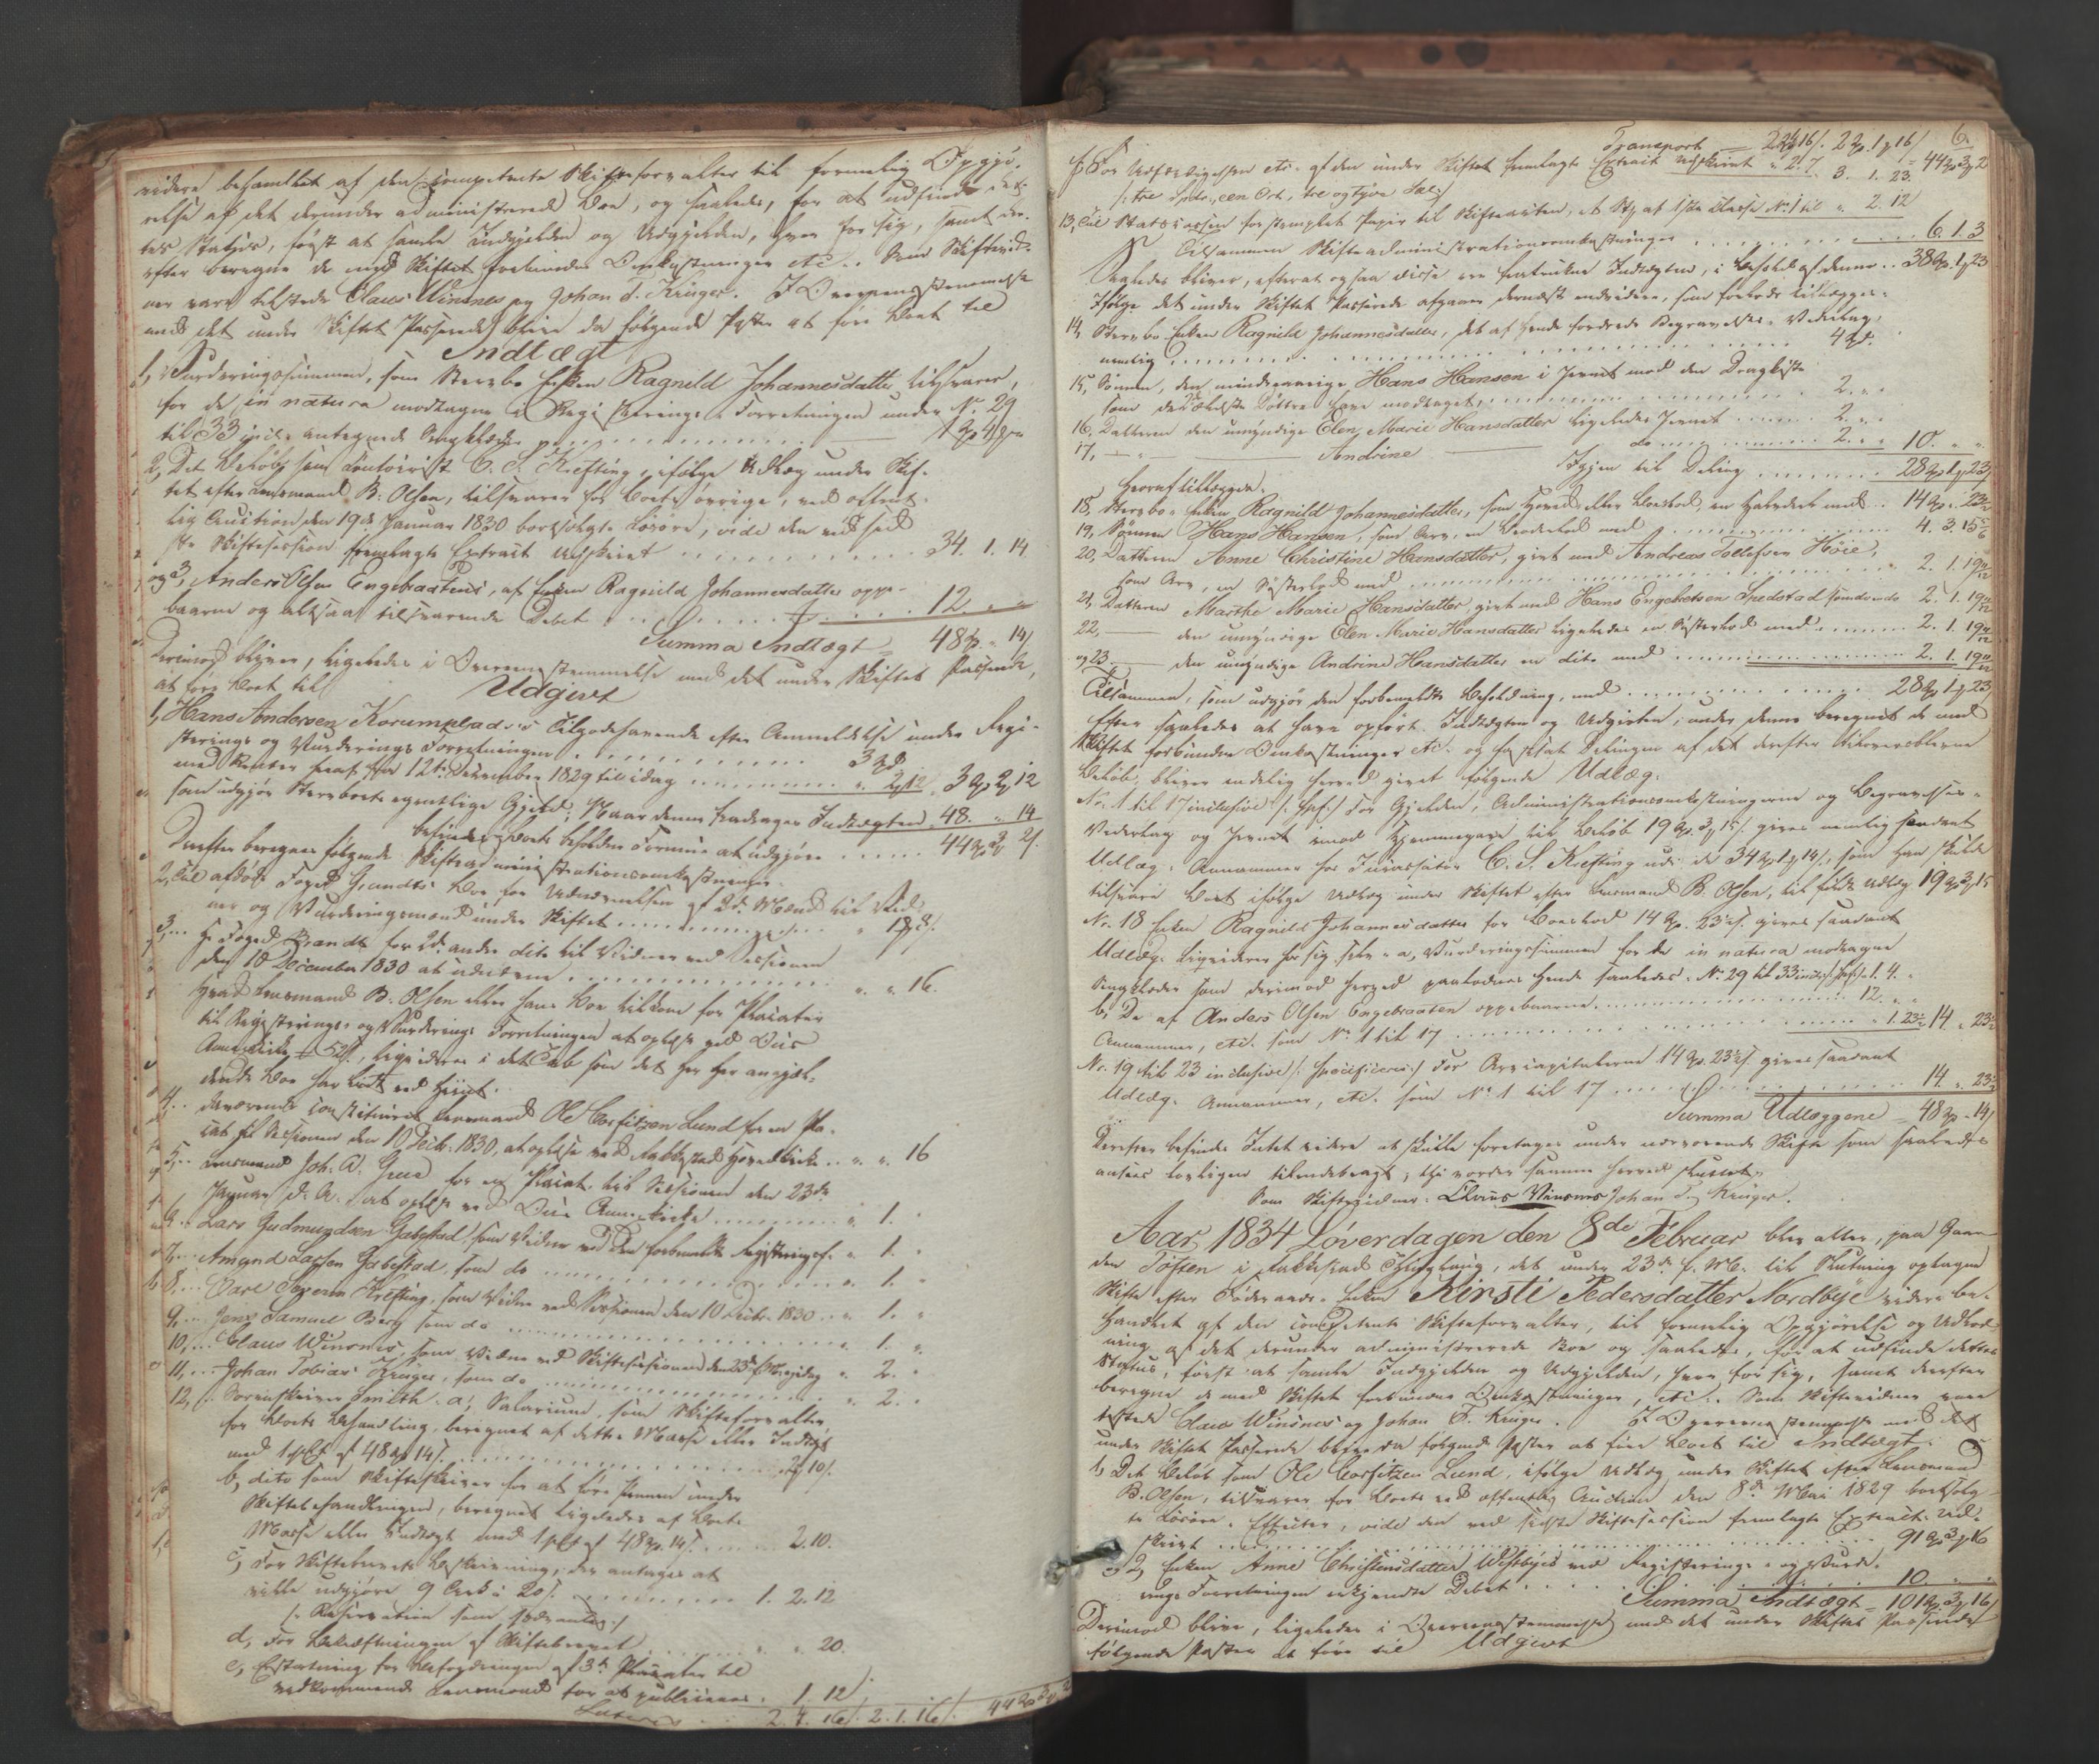 videre behandlet af den competente Skifteforvalter til formelig Opgjö-
relse af det derunder administrerede Boe, og saaledes, for at udfinde det-
tes Status, först at samle Indgjelden og Udgjelden, hver for sig, samt der-
efter beregne de med Skiftet forbundne Omkostninger etc. Som Skiftevid-
ner vare tilstede Claus Winsnes og Johan T. Krüger. I Overeensstemmelse
med det under Skiftet Passerede blive da fölgende Poster at före Boet til
Indtægt
1, Vurderingssummen, som Sterboe Enken Ragnild Johannesdatter tilsvarer,
for de in natura modtagne i Registrerings Forretningen under No. 29
til 33 incl. antegnede
2, Det Belöb som Contoirist C. S. Krefting, ifölge Udlæg under Skif-
tet efter Lensmand B. Olsen, tilsvarer for Boets övrige, ved offent-
lig Auction den 19de Januar 1830 bortsolgte Lösöre, vide den ved sid-
ste Skiftesession fremlagte Extract Udskrivt 34. 1. 14
og 3, Anders Olsen Engebraatens, af Enken Ragnild Johannesdatter oppe-
baarne og altsaa tilsvarende Debet 12. " "
Summa Indtægt = 48 Sp. " 14 s
Derimod bliver, ligeledes i Overeensstemmelse med det under Skiftet Passerede,
at före Boet til
Udgivt
1, Hans Andersen Korumplads's Tilgodehavende efter Anmeldelse under Regi-
sterings og Vurderings Forretningen 3 Spd.
med Renter heraf fra 12te December 1829 til idag " 2. 12 3 Sp 2 12
som udgjör Sterboets egentlige Gjeld; Naar denne fradrages Indtægten 48. " 14
befindes Boets beholdne Formue at udgjöre 44 Sp 3 2 s.
Derefter beregnes fölgende Skifteadministrationsomkostninger.
2, Til afdöde Foged Grandts Boe for Udnævnelsen af 2de Mænd til Vid-
ner og Vurderingsmænd under Skiftet
3, Hr Foged Brandt for 2de andre dito til Vidner ved Sessionen
den 10 December 1830 at udnævne " " 16.
Hvad Lensmand B. Olsen eller hans Boe tilkom for Placater
til Registerings og Vurderings Forretningen at oplæse ved Öiers
Annexkirke 52 s, liqvideres i det Tab som det her
dende Boe har lidt ved hiint.
4, daværende constitueret Lensmand Ole Corfitzen Lund for en Pla-
cat til Sessionen den 10 Decbr. 1830, at oplæse ved Nabbestad Hovedkirke " " 16
5, Lensmand Joh. A. Grue for en Placat til Sessionen den 23de
Januar d. A. at oplæse ved Öiers Annexkirke " 1. "
6, Lars Gudmundsen Gabestad, som Vidne ved den forbemeldte Registeringsf. " 1. "
7, Amund Larsen Gabestad, som do " 1. "
8, Carl Severin Krefting, som Vidne ved Sessionen den 10 Decbr. 1830 " 1. "
9, Jens Samuel Berg som do " 1. "
10, Claus Winsnes, som Vidne ved Skiftesessionen den 23de f. M. og idag " 2. "
11, Johan Tobias Krüger, som do " 2. "
12, Sorenskriver Smith. a, Salarium, som Skifteforvalter
for Boets Behandling, beregnet af dettes Masse eller Indtægt
med 1 pCt af 48 Sp 14 s 2 10 s.
b, dito som Skifteskriver for at före Pennen under
Skiftebehandlingen, beregnet ligeledes af Boets
Masse eller Indtægt med 1 pCt af 48 Sp 14 s 2. 10.
c, For Skiftebrevets Beskrivning, der antages at
ville udgjöre 9 Ark à 20 s. 1. 2. 12
d, For Bekræftningen af Skiftebrevet " " 20.
e, Erstatning for Befordringen af 3de Placater til
vedkommende Lensmænd for at publiceres. 1. 12 s.
Lateris 2. 4. 16 s. 2. 1. 16 s. 44 Sp 3 2
6.
Transport = 2. 4. 16 s. 2 Sp. 1. 16 s
f, For Udfærdigelsen etc. af den under Skiftet fremlagte Extract Udskrivt " 2. 7. 3. 1. 23. 44 Sp 3 2
/: tre Spdr., een Ort, tre og tyve Skl :/
13, Til Statskassen for stemplet Papir til Skifteacten, et Ark af 1ste Classe No. 1 til " 2. 12
Tilsammen Skifteadministrationsomkostninger 6. 1. 3
Saaledes bliver, efterat ogsaa disse ere fratrukne Indtægten, i Behold af denne 38 Sp. 1 23
Ifölge det under Skiftet Passerede afgaaer dernæst endvidere, som forlods tillægges:
14, Sterboe Enken Ragnild Johannesdatter, det af hende fordrede Begravelses-Vederlag,
nemlig 4 Spd.
15, Sönnen, den mindreaarige Hans Hansen i Jevnet mod den Dragkiste
som de 2 ældste Döttre have modtaget 2. " "
16, Datteren den umyndige Elen Marie Hansdatter ligeledes Jevnet 2. " "
17, — " — Andrine — do 2. " " 10. " "
Igjen til Deling 28 Sp 1 23
hvoraf tillægges.
18, Sterboe Enken Ragnild Johannesdatter, som Hoved eller Boeslod, en Halvdeel med 14 Sp. " 23½
19, Sönnen Hans Hansen, som Arv, en Broderlod med 4. 3. 15 5/6
20, Datteren Anne Christine Hansdatter, givt med Andreas Tollefsen Höie,
som Arv, en Sösterlod med 2. 1. 19 11/12
21, Datteren Marthe Marie Hansdatter, givt med Hans Engebretsen Spedstad 2. 1. 19 11/12
22, — den umyndige Elen Marie Hansdatter ligeledes en Sösterlod med 2. 1. 19 11/12
og 23. — den umyndige Andrine Hansdatter en dito med 2. 1. 19 11/12
Tilsammen, som udgjör den forbemeldte Beholdning, med 28 Sp 1 23
Efter saaledes at have opfört Indtægten og Udgivten, under denne beregnet de med
Skiftet forbundne Omkostninger etc. og fastsat Delingen af det derefter tiloversblevne
Belöb, bliver endelig herved givet fölgende Udlæg.
No. 1 til 17 inclusive /: spf.:/ For Gjelden, Administrationsomkostningerne og Begravelses-
Vederlag og Jevnet imod Hjemmegave til Belöb 19 Sp. 3 15 s. gives nemlig saadant
Udlæg. Annammer hos C. S. Krefting udi de 34 Sp 1 14 s, som han skulde
tilsvare Boet ifölge Udlæg under Skiftet efter Lensmand B. Olsen, til fuldt Udlæg. 19 Sp 3 15
No. 18 Enken Ragnild Johannesdatter for Boeslod 14 Sp. 23½ s. gives saadant
Udlæg. Liqviderer hos sig selv a, Vurderingssummen for de in natura modtagne
som derimod herved paalodnes hende saaledes: No. 29 til 33 incl. /: spf. :/ 1. 4. "
b, De af Anders Olsen Engebraaten oppebaarne 12. " "
Annammer, etc. som No. 1 til 17 " 1. 23½ 14. " 23½
No. 19 til 23 inclusive /: specificeres :/ For Arvecapitalerne 14 Sp. 23½ s. gives saadant
Udlæg. Annammer, etc. som No. 1 til 17 14. " 23½
Summa Udlæggene = 48 Sp. " 14 s
Derefter befindes Intet videre at skulle foretages under nærværende Skifte som saaledes
ansees lovligen tilendebragt, thi vorder samme herved sluttet.
Som Skiftevidner: Claus Winsnes Johan T. Krüger.
Aar 1834 Löverdagen den 8de Februar blev atter, paa Gaar-
den Toften i Nabbestad Thinglaug, det under 23de f. M. til Slutning optagne
Skifte efter Föderaads-Enken Kirsti Pedersdatter Nordbye videre be-
handlet af den competente Skifteforvalter, til formelig Opgjörelse og Udlod-
ning af det derunder administrerede Boe og saaledes, for at udfinde dettes
Status, först at samle Indgjelden og Udgjelden, hver for sig, samt derefter
beregne de med Skiftet forbundne Omkostninger, etc. Som Skiftevidner vare
tilstede Claus Winsnes og Johan T. Krüger. I Overeensstemmelse med det
under Skiftet Passerede blive da fölgende Poster at före Boet til Indtægt.
1, Det Belöb som Ole Corfitzen Lund, ifölge Udlæg under Skiftet efter Lensmand
B. Olsen, tilsvarer for Boets ved offentlig Auction den 8de Mai 1829 bortsolg-
te Lösöre-Effecter, vide den ved sidste Skiftesession fremlagte Extract-Ud-
skrivt 91 Sp 3 16
og 2, Enken Anne Christensdatter Westbyes ved Registerings- og Vurde-
rings Forretningen vedkjendte Debet 10. " "
Summa Indtægt = 101 Sp. 3 16 s
Derimod blive, ligeledes i Overeensstemmelse med det under Skiftet Passerede
fölgende Poster at före til Udgivt